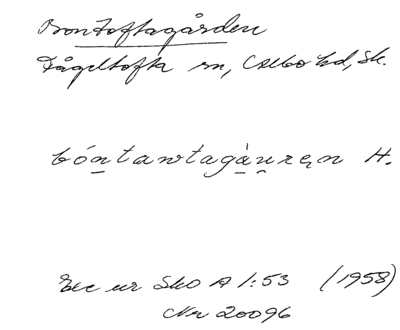 Brontoftagården
Fågeltofta sn, Albo hd, Sk.
bóntawtagàuręn H.
Exc ur Sko A 1:53 (1958)
Nr 20096